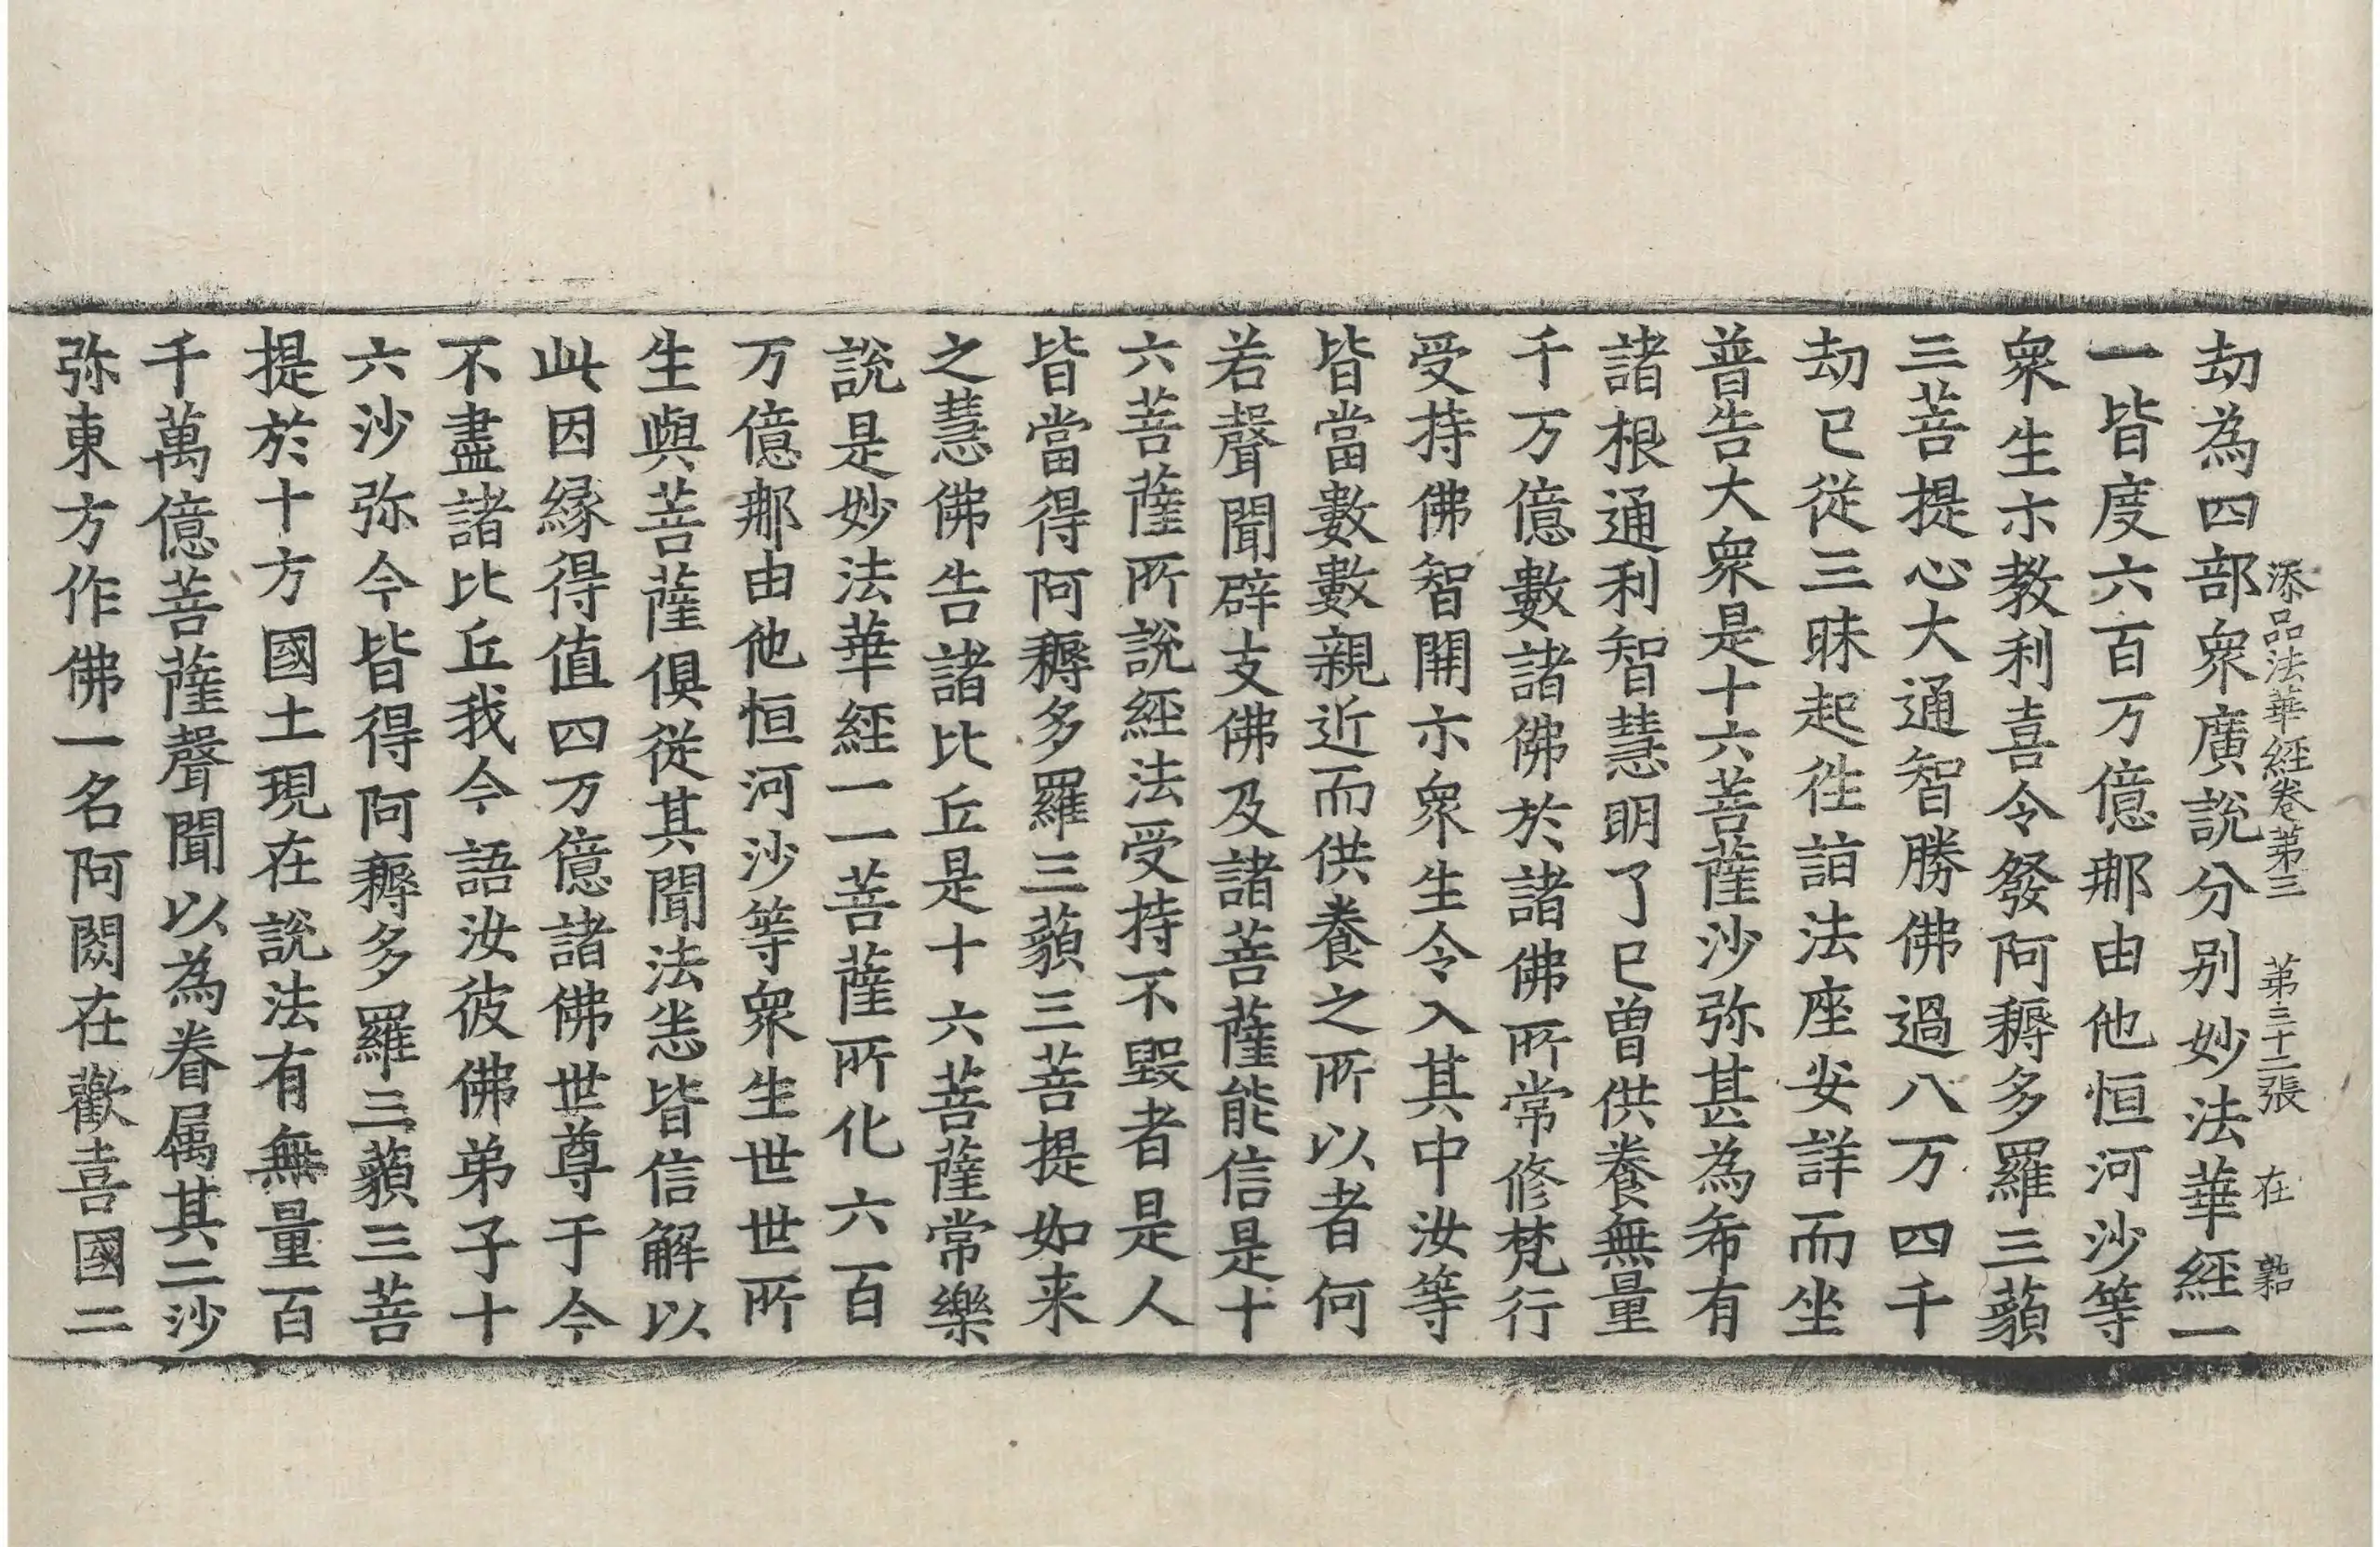 添品法華經卷第三　第三十二張　在
劫為四部衆廣說分別妙法華經一
一皆度六百万億那由他恒河沙等
衆生示教利喜令發阿耨多羅三藐
三菩提心大通智勝佛過八万四千
劫已從三昧起往詣法座安詳而坐
普告大衆是十六菩薩沙弥甚為希有
諸根通利智慧明了已曽供養無量
千万億數諸佛於諸佛所常修梵行
受持佛智開示衆生令入其中汝等
皆當數數親近而供養之所以者何
若聲聞辟支佛及諸菩薩能信是十
六菩薩所說經法受持不毀者是人
皆當得阿耨多羅三藐三菩提如来
之慧佛告諸比丘是十六菩薩常樂
說是妙法華經一一菩薩所化六百
万億那由他恒河沙等衆生世世所
生與菩薩俱從其聞法悉皆信解以
此因緣得值四万億諸佛世尊于今
不盡諸比丘我今語汝彼佛弟子十
六沙弥今皆得阿耨多羅三藐三菩
提於十方國土現在說法有無量百
千萬億菩薩聲聞以為眷属其二沙
弥東方作佛一名阿閦在歡喜國二